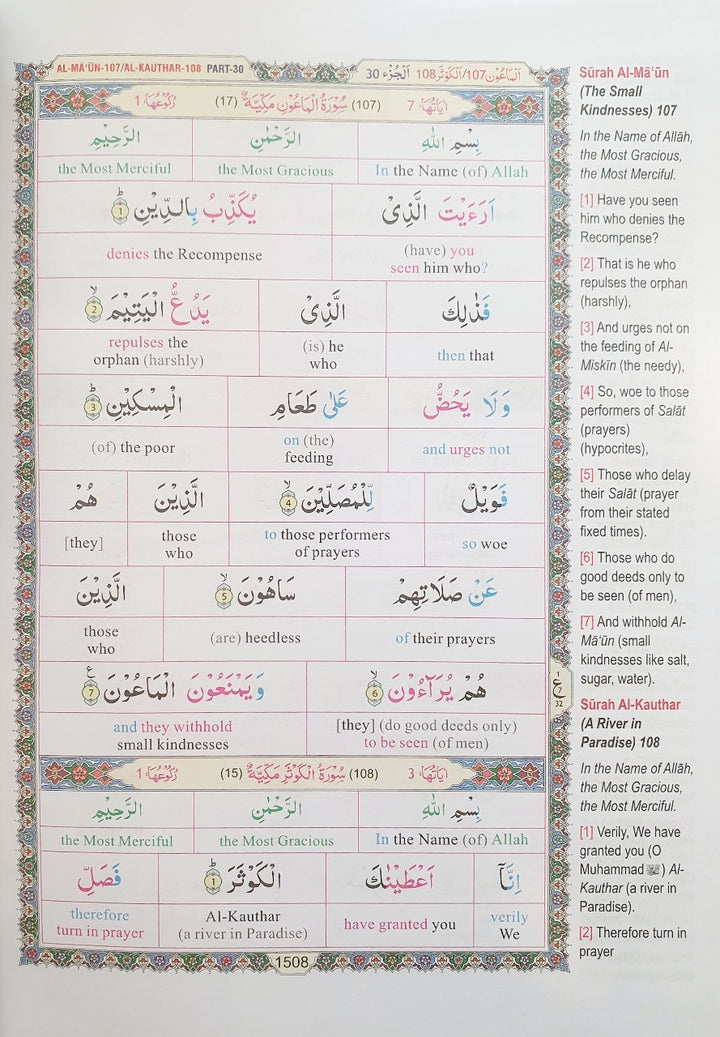 AL-MĀ‘ŪN-107/AL-KAUTHAR-108 PART-30
اَلْمَاعُوْن107/اَلْكَوْثَر108 اَلْجُزْء 30
اٰيَاتُهَا: 7 (107) سُوْرَةُ الْمَاعُوْنِ مَكِّيَّةٌ (17) رُكُوْعُهَا: 1
بِسْمِ اللّٰهِ الرَّحْمٰنِ الرَّحِيْمِ
In the Name (of) Allah the Most Gracious the Most Merciful
اَرَءَيْتَ الَّذِىْ يُكَذِّبُ بِالدِّيْنِ ۱
(have) you
seen him who? denies the Recompense
فَذٰلِكَ الَّذِىْ يَدُعُّ الْيَتِيْمَ ۲
then that (is) he
who repulses the
orphan (harshly)
وَلَا يَحُضُّ عَلٰى طَعَامِ الْمِسْكِيْنِ ۳
and urges not on (the)
feeding (of) the poor
فَوَيْلٌ لِّلْمُصَلِّيْنَ ۴ الَّذِيْنَ هُمْ
so woe to those performers
of prayers those
who [they]
عَنْ صَلَاتِهِمْ سَاهُوْنَ ۵ الَّذِيْنَ
of their prayers (are) heedless those
who
هُمْ يُرَآءُوْنَ ۶ وَيَمْنَعُوْنَ الْمَاعُوْنَ ۷
[they] (do good deeds only)
to be seen (of men) and they withhold
small kindnesses
ع
1
7
32
اٰيَاتُهَا: 3 (108) سُوْرَةُ الْكَوْثَرِ مَكِّيَّةٌ (15) رُكُوْعُهَا: 1
بِسْمِ اللّٰهِ الرَّحْمٰنِ الرَّحِيْمِ
In the Name (of) Allah the Most Gracious the Most Merciful
اِنَّآ اَعْطَيْنٰكَ الْكَوْثَرَ ۱ فَصَلِّ
verily
We have granted you Al-Kauthar
(a river in Paradise) therefore
turn in prayer
1508
Sūrah Al-Mā‘ūn
(The Small
Kindnesses) 107
In the Name of Allāh,
the Most Gracious,
the Most Merciful.
[1] Have you seen
him who denies the
Recompense?
[2] That is he who
repulses the orphan
(harshly),
[3] And urges not on
the feeding of Al-
Miskīn (the needy),
[4] So, woe to those
performers of Salāt
(prayers)
(hypocrites),
[5] Those who delay
their Salāt (prayer
from their stated
fixed times).
[6] Those who do
good deeds only to
be seen (of men),
[7] And withhold Al-
Mā‘ūn (small
kindnesses like salt,
sugar, water).
Sūrah Al-Kauthar
(A River in
Paradise) 108
In the Name of Allāh,
the Most Gracious,
the Most Merciful.
[1] Verily, We have
granted you (O
Muhammad ﷺ) Al-
Kauthar (a river in
Paradise).
[2] Therefore turn in
prayer